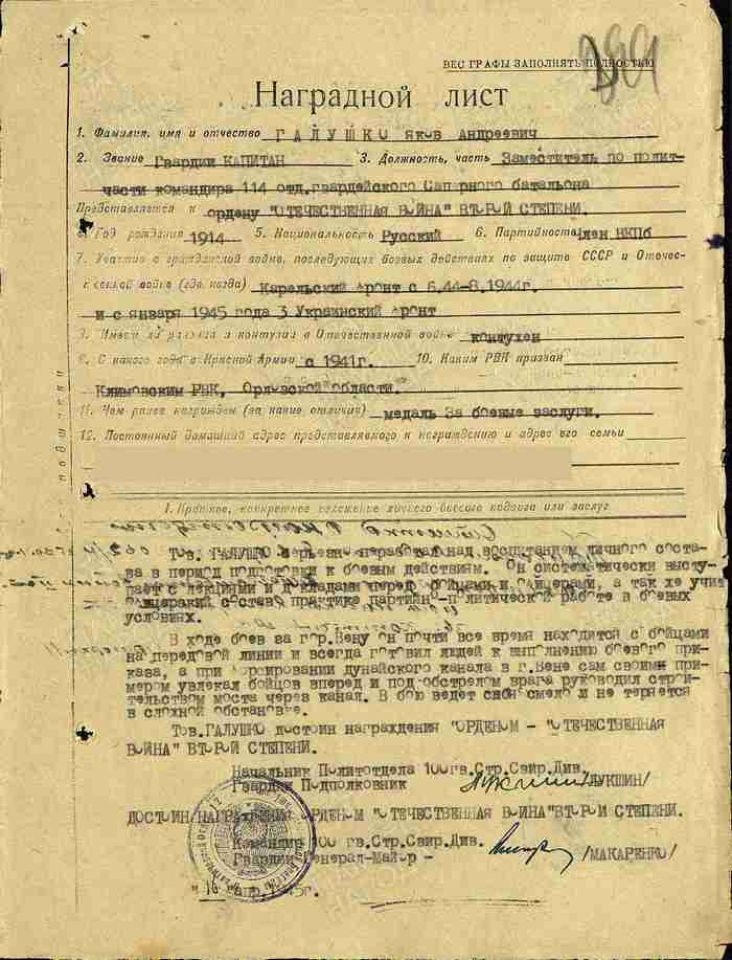 ВСЕ ГРАФЫ ЗАПОЛНЯТЬ ПОЛНОСТЬЮ
Наградной лист
1. Фамилия, имя и отчество ГАЛУШКО Яков Андреевич
2. Звание Гвардии КАПИТАН 3. Должность, часть Заместитель по полит-
части командира 114 отд.гвардейского Саперного батальона
Представляется к ордену "ОТЕЧЕСТВЕННАЯ ВОЙНА" ВТОРОЙ СТЕПЕНИ.
Год рождения 1914 5. Национальность Русский 6. Партийность член ВКПб
7. Участие в гражданской войне, последующих боевых действиях по защите СССР и Отечес-
твенной войне (где, когда) Карельский фронт с 6.44-8.1944г.
и с января 1945 года 3 Украинский фронт
8. Имеет ли ранения и контузии в Отечественной войне контужен
9. С какого года в Красной Армии с 1941г. 10. Каким РВК призван
Климовским РВК, Орловской области.
11. Чем ранее награжден (за какие отличия) медаль За боевые заслуги.
12. Постоянный домашний адрес представляемого к награждению и адрес его семьи
I. Краткое, конкретное изложение личного боевого подвига или заслуг
Тов. ГАЛУШКО серьезно поработал над воспитанием личного соста-
ва в период подготовки к боевым действиям. Он систематически высту-
пает с лекциями и докладами перед бойцами и офицерами, а так же учит
офицерский состав практике партийно-политической работе в боевых
условиях.
В ходе боев за гор.Вену он почти все время находится с бойцами
на передовой линии и всегда готовил людей к выполнению боевого при-
каза, а при форсировании дунайского канала в г.Вене сам своим при-
мером увлекал бойцов вперед и под обстрелом врага руководил строи-
тельством моста через канал. В бою ведет себя смело и не теряется
в сложной обстановке.
Тов.ГАЛУШКО достоин награждения "ОРДЕНОМ - "ОТЕЧЕСТВЕННАЯ
ВОЙНА" ВТОРОЙ СТЕПЕНИ.
Начальник Политотдела 100гв.Стр.Свир.Див.
Гвардии Подполковник /ЛУКШИН/
ДОСТОИН НАГРАЖДЕНИЯ ОРДЕНОМ "ОТЕЧЕСТВЕННАЯ ВОЙНА"ВТОРОЙ СТЕПЕНИ.
Командир 100 гв.Стр.Свир.Див.
Гвардии Генерал-Майор - /МАКАРЕНКО/
апр.1945г.